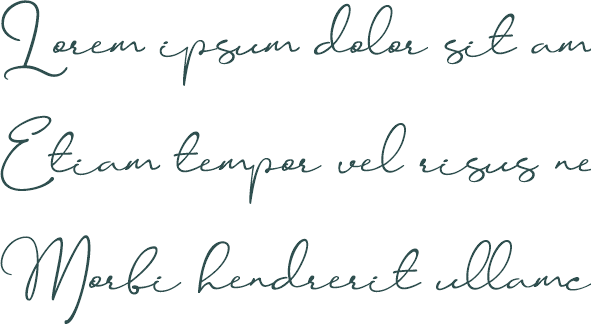 Lorem ipsum dolor sit am
Etiam tempor vel risus ne
Morbi hendrerit ullamc